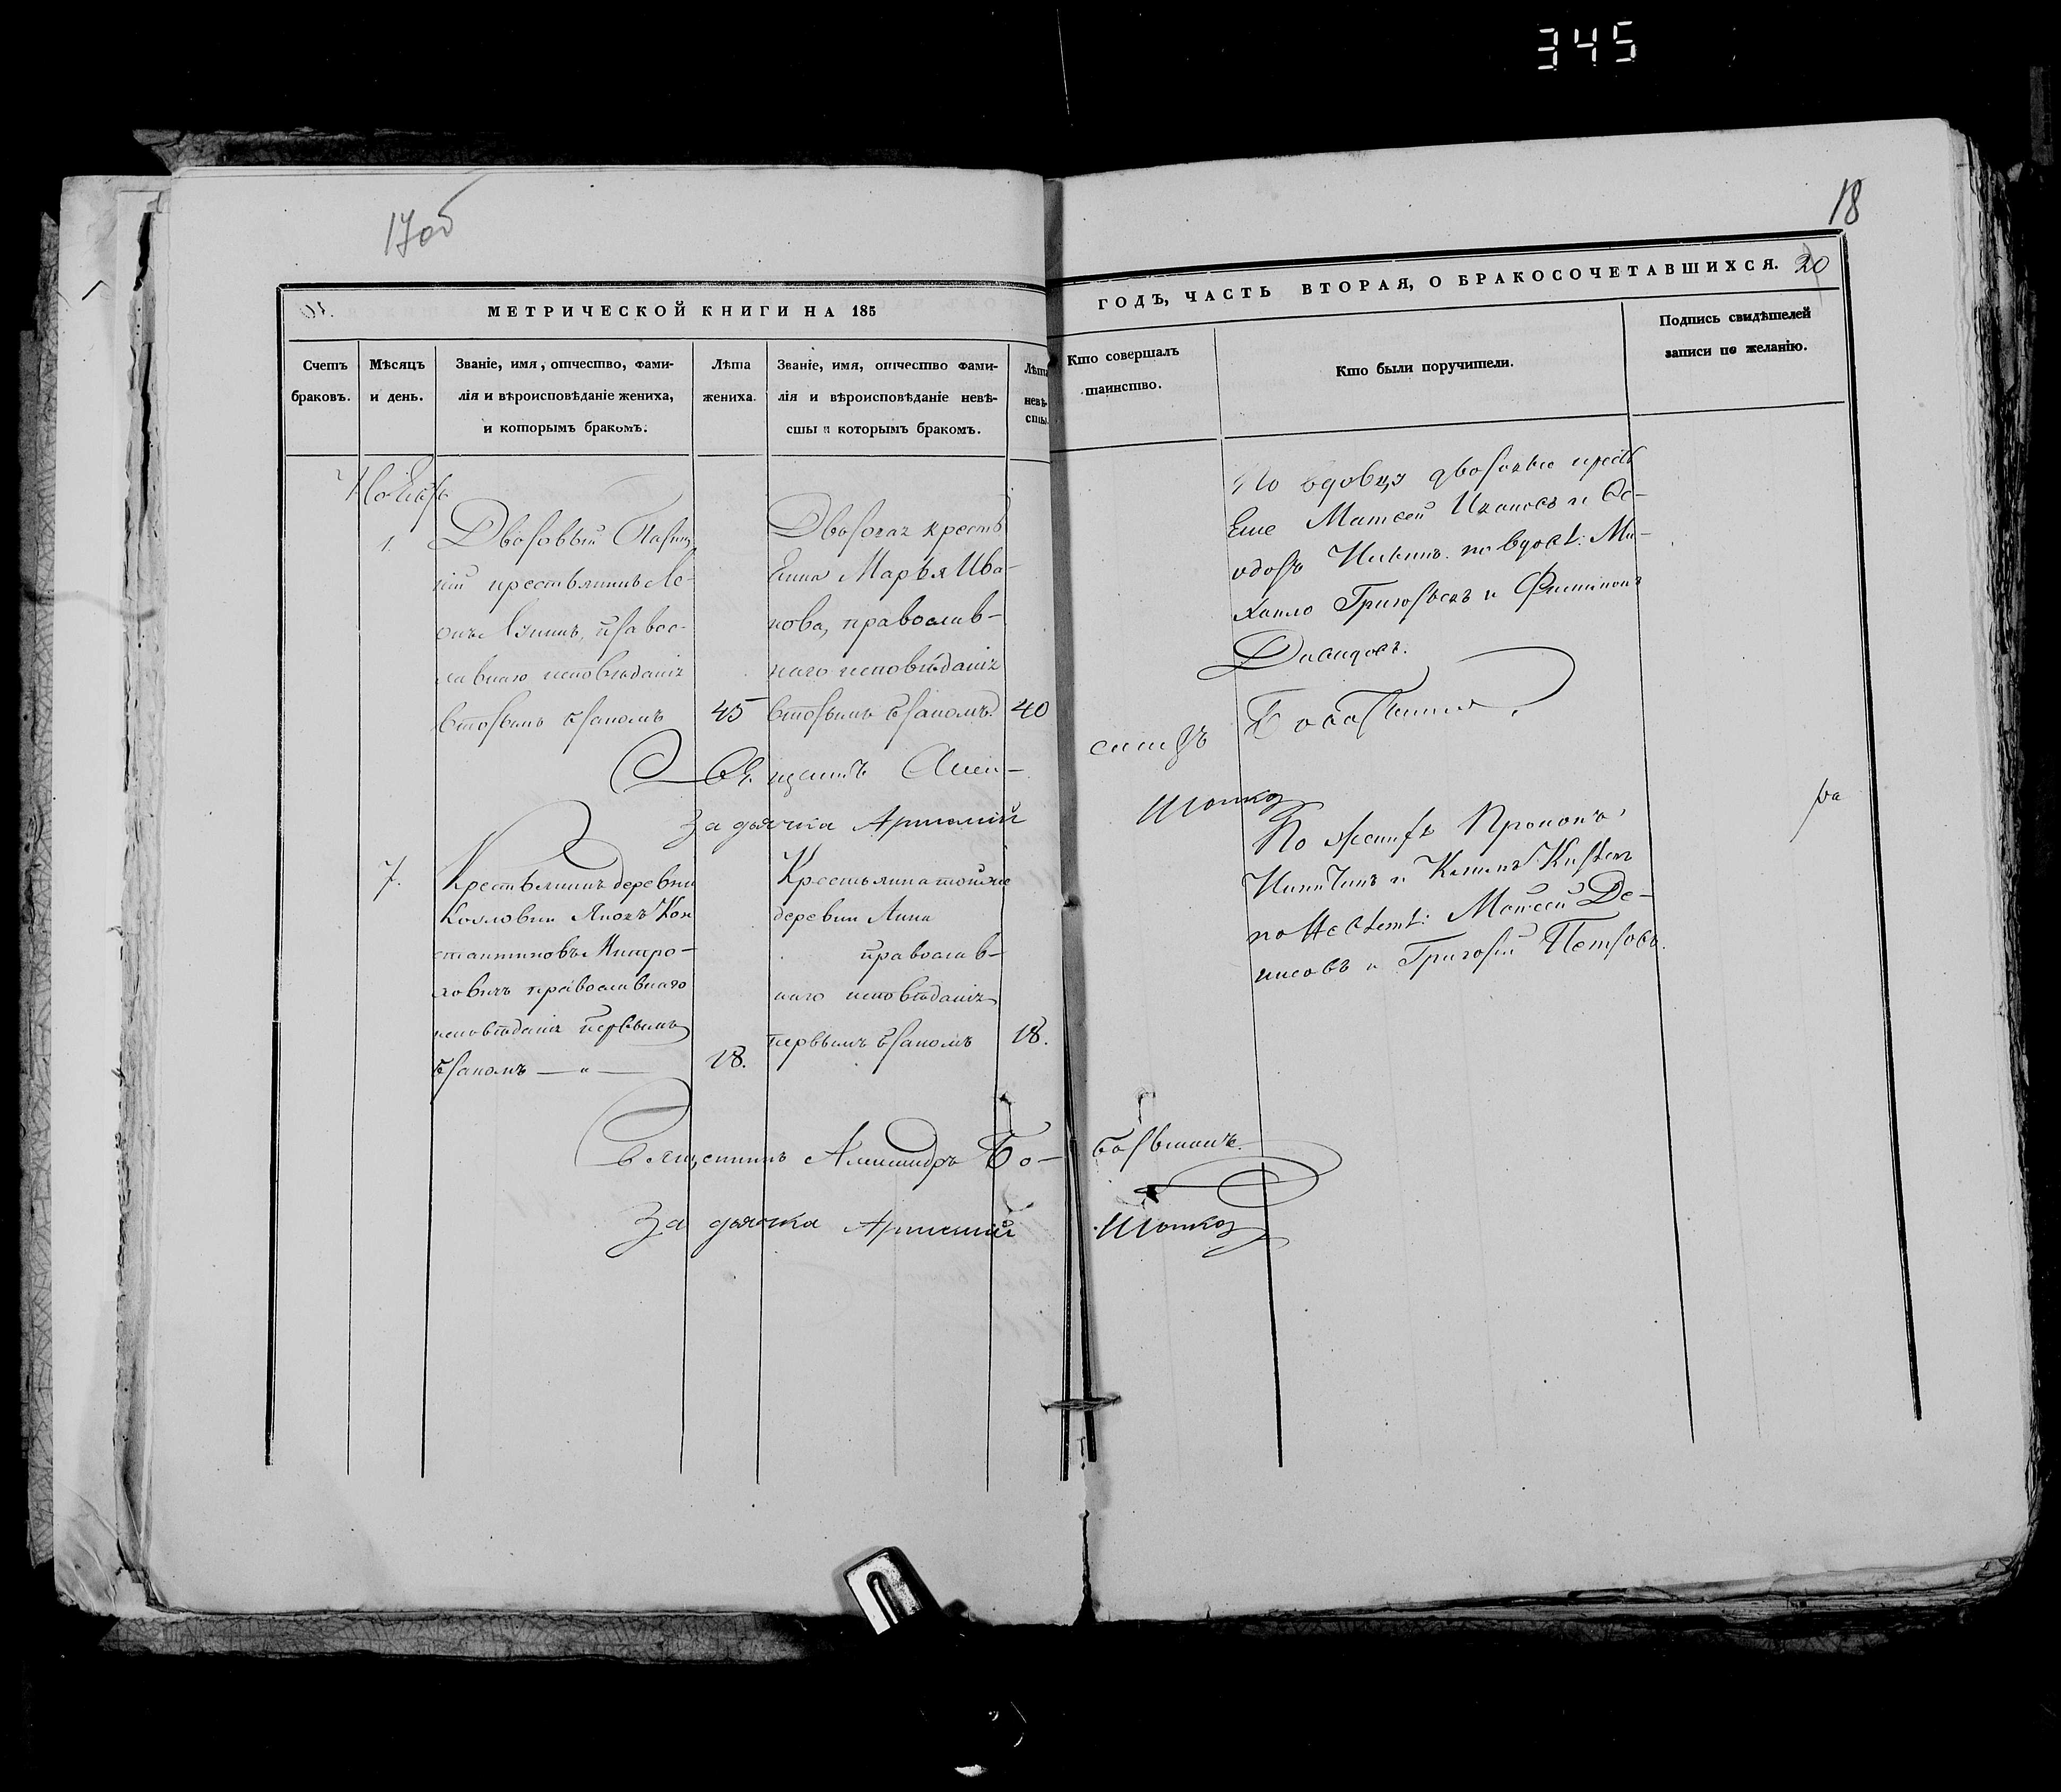 345
17об
18
МЕТРИЧЕСКОЙ КНИГИ НА 185
ГОДЪ, ЧАСТЬ ВТОРАЯ, О БРАКОСОЧЕТАВШИХСЯ. 20
Счетъ
браковъ.
Мѣсяцъ
и день.
Званіе, имя, отчество, фами-
лія и вѣроисповѣданіе жениха,
и которымъ бракомъ.
Лѣта
жениха.
Званіе, имя, отчество фами-
лія и вѣроисповѣданіе невѣ-
сты и которымъ бракомъ.
Лѣта
невѣ-
сты.
Кто совершалъ
таинство.
Кто были поручители.
Подпись свидѣтелей
записи по желанію.
Ноябрь
1.
Дворовый
крестьянинъ Ле-
онъ правос-
лавнаго исповѣданія
вторымъ бракомъ
45
Дворовая кресть
Марья Ива-
нова, православ-
наго исповѣданія
вторымъ бракомъ
40
По вдовцѣ дворовые кресть
Матвей Ивановъ и
по вдовѣ: Ми-
хайло Григорьевъ и
Давидовъ.
За дьячка Артемій
7.
Крестьянинъ деревни
Козловки Яковъ Кон
стантиновъ Митро-
ховичъ православнаго
исповѣданія первымъ
бракомъ — " —
18.
Крестьянка тойже
деревни Анна
православ-
наго исповѣданія
первымъ бракомъ
18.
По женихѣ Прокопъ
Никитинъ и
по Невѣст: Моисей Де-
нисовъ и Григорій Петровъ.
Священникъ Александръ Бо-
За дьячка Артемій